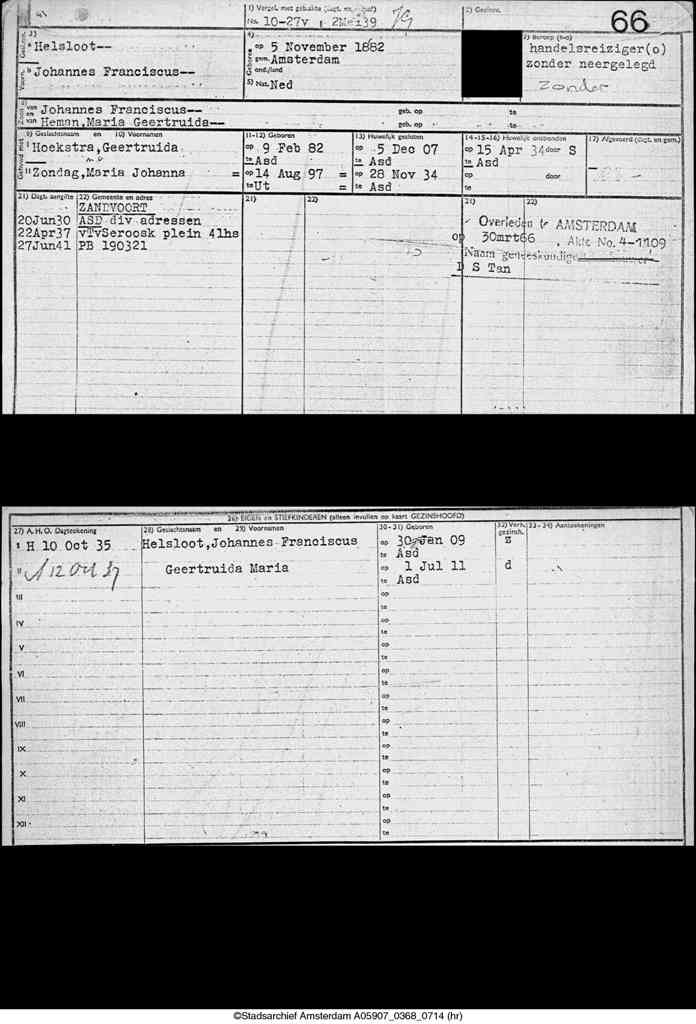 1) Vergel. met gezinskrt (dagt. en paraaf) 2) Gezinsnr.
No. 10-27v 2Mei39 79 66
3) 4) 7) Beroep (h-o)
Geslsn. a Helsloot-- Geboren op 5 November 1882 handelsreiziger(o)
gem. Amsterdam zonder neergelegd
Voorn. b Johannes Franciscus-- ond./land zonder
5) Nat. Ned
Zoon van Johannes Franciscus-- geb. op te
en van Heman,Maria Geertruida-- geb. op te
9) Geslachtsnaam en 10) Voornamen 11-12) Geboren 13) Huwelijk gesloten 14-15-16) Huwelijk ontbonden 17) Afgevoerd (dagt. en gem.)
Gehuwd met I Hoekstra,Geertruida op 9 Feb 82 op 5 Dec 07 op 15 Apr 34 door S
te Asd te Asd te Asd
II Zondag,Maria Johanna = op 14 Aug 97 = op 28 Nov 34 op door
te Ut = te Asd te
21) Dagt. aangifte 22) Gemeente en adres 21) 22) 21) 22)
ZANDVOORT
20Jun30 ASD div adressen Overleden te AMSTERDAM
22Apr37 vTvSeroosk plein 41hs op 30mrt66, Akte No. 4-1109
27Jun41 PB 190321 Naam geneeskundige
D S Tan
26) EIGEN en STIEFKINDEREN (alleen invullen op kaart GEZINSHOOFD)
27) A. H. O. Dagtekening 28) Geslachtsnaam en 29) Voornamen 30-31) Geboren 32) Verh. t. gezinsh. 33-34) Aantekeningen
I H 10 Oct 35 Helsloot,Johannes Franciscus op 30 Jan 09 z
te Asd
II A 12 Oct 37 Geertruida Maria op 1 Jul 11 d
te Asd
III op
te
IV op
te
V op
te
VI op
te
VII op
te
VIII op
te
IX op
te
X op
te
XI op
te
XII op
te
©Stadsarchief Amsterdam A05907_0368_0714 (hr)